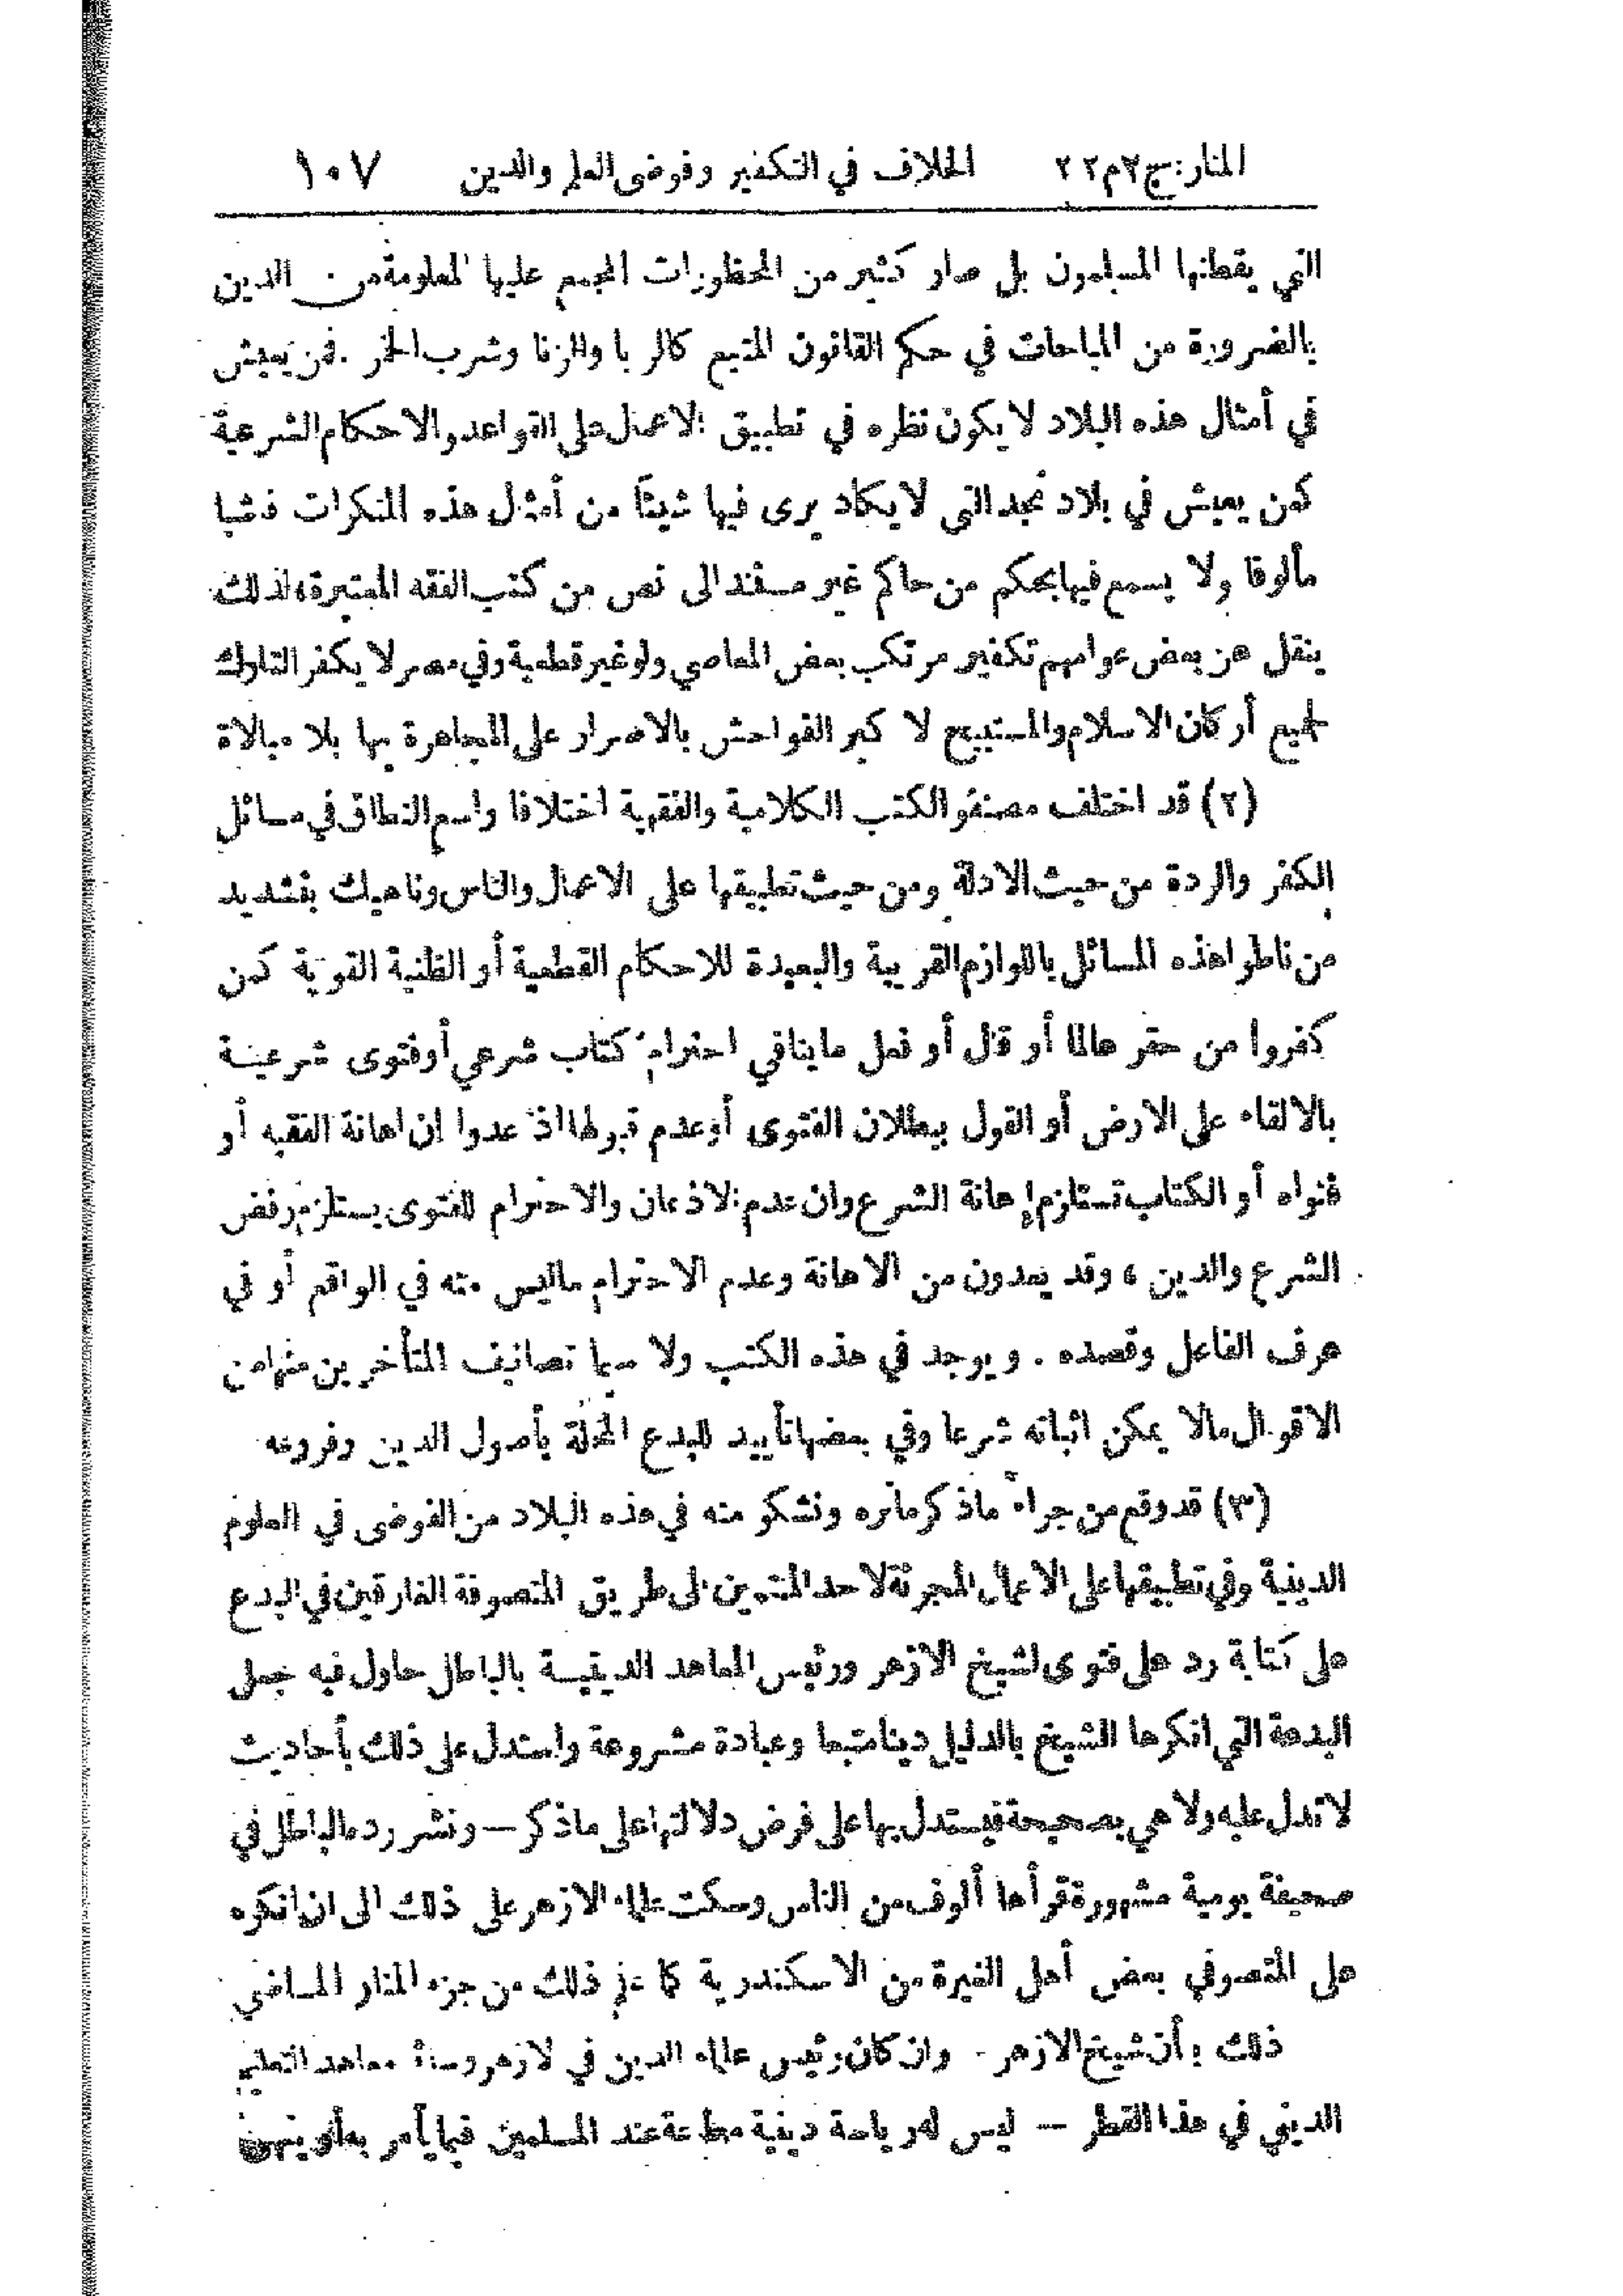 المنار: ج٢م٢٢ الخلاف في التكفير وفوضى العلم والدين ١٠٧
التي يقطنها المسلمون بل صار كثير من المحظورات المجمع عليها المعلومة من الدين
بالضرورة من المباحات في حكم القانون المتبع كالربا والزنا وشرب الخمر . فمن يعيش
في أمثال هذه البلاد لا يكون نظره في تطبيق الاعمال على القواعد والاحكام الشرعية
كمن يعيش في بلاد نجد التي لا يكاد يرى فيها شيئا من أمثال هذه المنكرات فاشيا
مألوفا ولا يسمع فيها بحكم من حاكم غير مستند الى نص من كتب الفقه المعتبرة، لذلك
ينقل عن بعض عوامهم تكفير مرتكب بعض المعاصي ولو غير قطعية وفي مصر لا يكفر التارك
لجميع أركان الاسلام والمستبيح لا كبر الفواحش بالاصرار على المجاهرة بها بلا مبالاة
(٢) قد اختلف مصنفو الكتب الكلامية والفقهية اختلافا واسع النطاق في مسائل
الكفر والردة من حيث الادلة ومن حيث تطبيقها على الاعمال والناس وناهيك بتشديد
من ناطوا هذه المسائل باللوازم القريبة والبعيدة للاحكام القطعية أو الظنية القوية كمن
كفروا من حقر عالما أو قال أو فعل ما ينافي احترام كتاب شرعي أو فتوى شرعية
بالالقاء على الارض أو القول ببطلان الفتوى أو عدم قبولها اذ عدوا ان اهانة الفقيه أو
فتواه أو الكتاب تستلزم إهانة الشرع وان عدم الاذعان والاحترام للفتوى يستلزم رفض
الشرع والدين ، وقد يعدون من الاهانة وعدم الاحترام ما ليس منه في الواقع أو في
عرف الفاعل وقصده . ويوجد في هذه الكتب ولا سيما تصانيف المتأخرين منها من
الاقوال مالا يمكن اثباته شرعا وفي بعضها تأييد للبدع المخلة بأصول الدين وفروعه
(٣) قد وقع من جراء ماذكر ما نره ونشكو منه في هذه البلاد من الفوضى في العلوم
الدينية وفي تطبيقها على الاعمال المجرئة لاحد المنتمين الى طريق المتصوفة الغارقين في البدع
على كتابة رد على فتوى لشيخ الازهر ورئيس المعاهد الدينية بالباطل حاول فيه جعل
البدعة التي انكرها الشيخ بالدليل دينا متبعا وعبادة مشروعة واستدل على ذلك بأحاديث
لا تدل عليه ولا هي بصحيحة فيستدل بها على فرض دلالتها على ماذكر — ونشر رده الباطل في
صحيفة يومية مشهورة قرأها ألوف من الناس وسكت علماء الازهر على ذلك الى ان انكره
على المتصوفي بعض أهل الغيرة من الاسكندرية كما علم ذلك من جزء المنار الماضي
ذلك بأن شيخ الازهر - وان كان رئيس علماء الدين في لازهر وسائر معاهد التعليم
الديني في هذا القطر — ليس له رياسة دينية مطاعة عند المسلمين فيما يأمر به أو ينهى